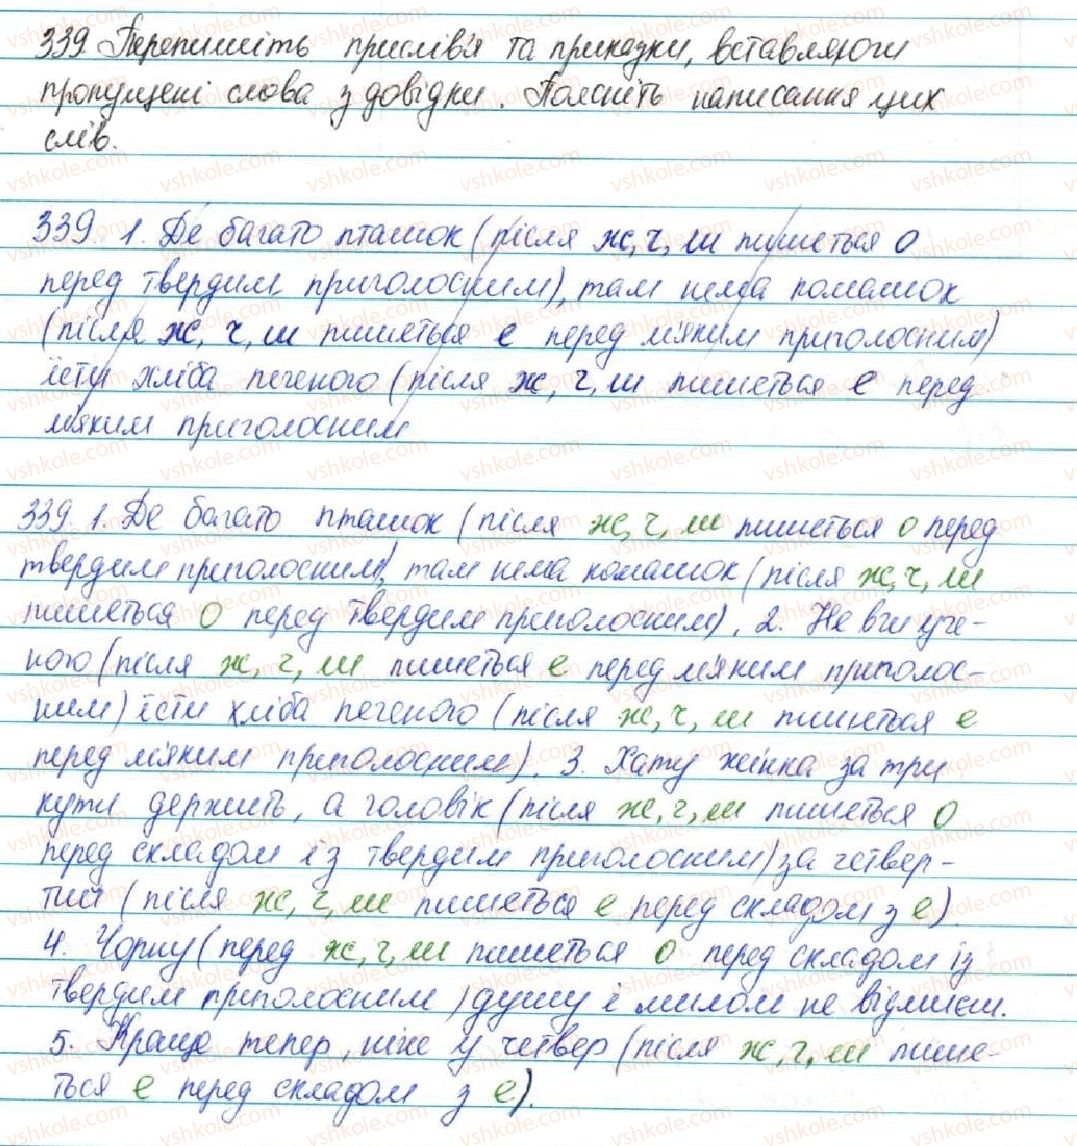 339. Перепишіть прислів'я та приказки, вставляючи
пропущені слова з довідки. Поясніть написання цих
слів.
339. 1. Де багато пташок (після ж, ч, ш пишеться о
перед твердим приголосним), там нема комашок
(після ж, ч, ш пишеться е перед м'яким приголосним)
їсти хліба печеного (після ж, ч, ш пишеться е перед
м'яким приголосним
339. 1. Де багато пташок (після ж, ч, ш пишеться о перед
твердим приголосним), там нема комашок (після ж, ч, ш
пишеться о перед твердим приголосним). 2. Не вчи уче-
ного (після ж, ч, ш пишеться е перед м'яким приголос-
ним) їсти хліба печеного (після ж, ч, ш пишеться е
перед м'яким приголосним). 3. Хату жінка за три
кути держить, а чоловік (після ж, ч, ш пишеться о
перед складом із твердим приголосним) за четвер-
тий (після ж, ч, ш пишеться е перед складом з е).
4. Чорну (перед ж, ч, ш пишеться о перед складом із
твердим приголосним) душу і милом не відмиєш.
5. Краще тепер, ніж у четвер (після ж, ч, ш пише-
ться е перед складом з е).